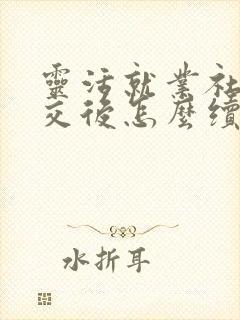 靈活就業社
交後怎麼續
水折耳